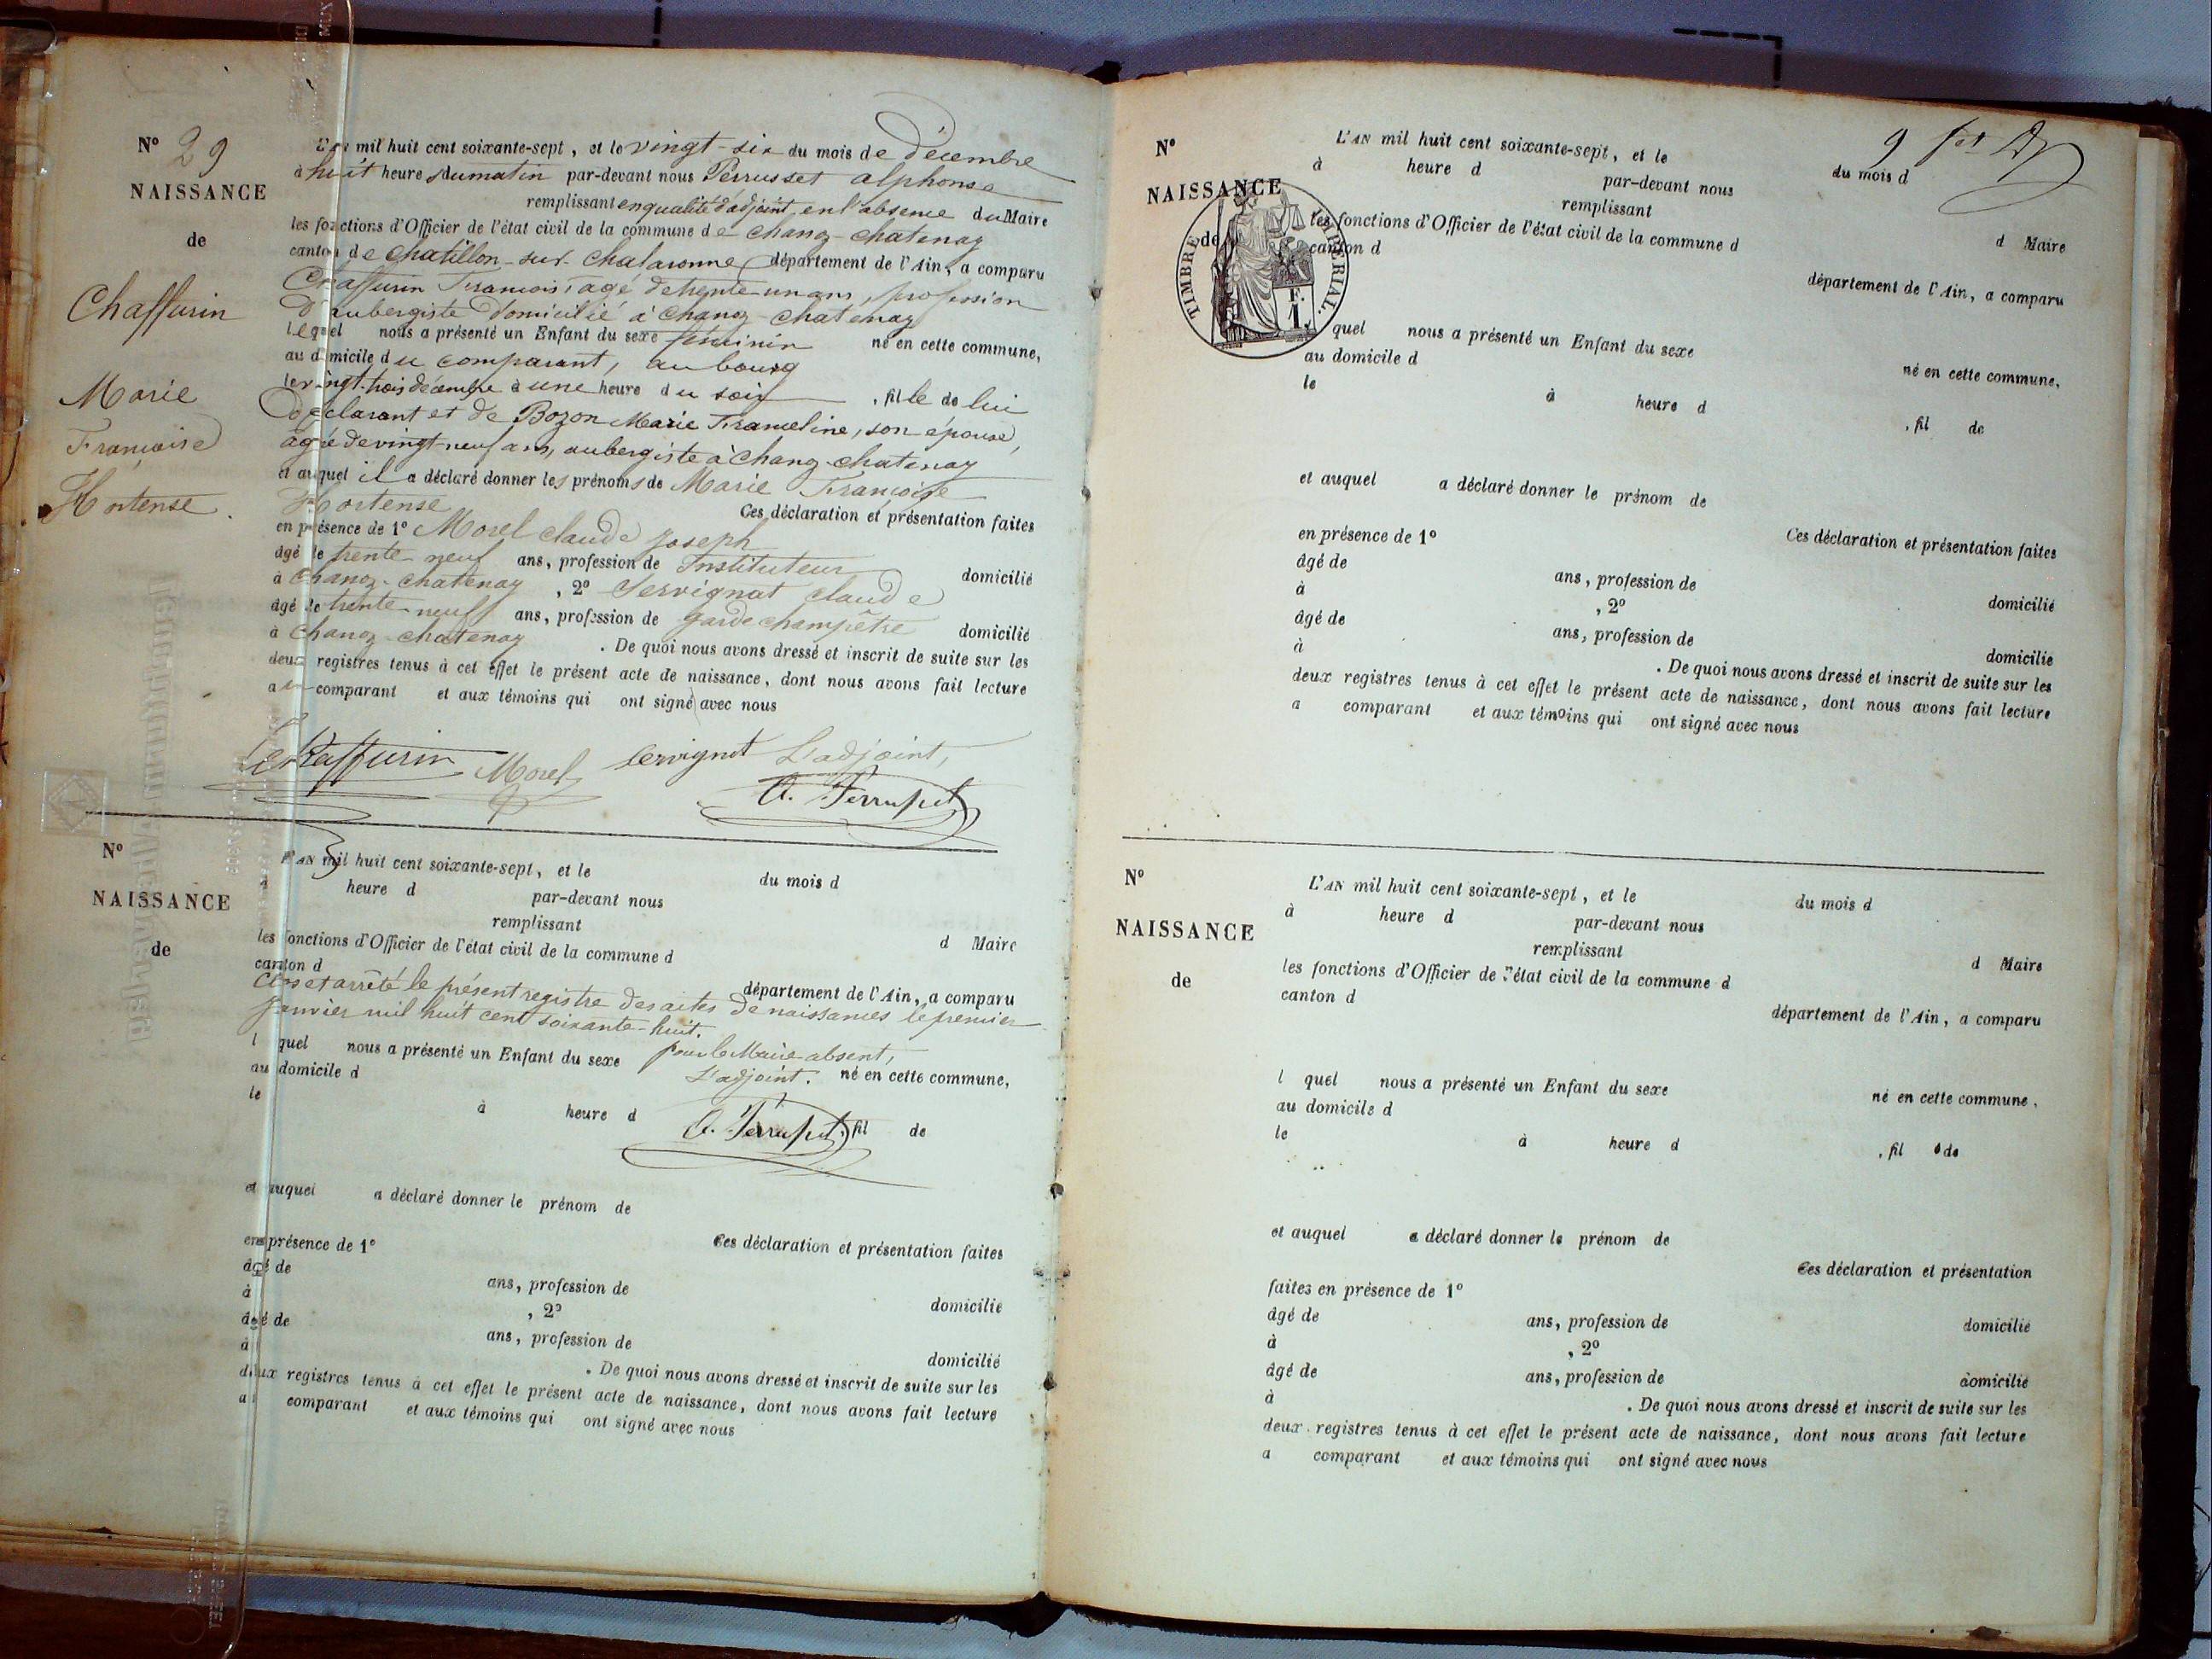 N° 29
NAISSANCE
de
Chaffurin
Marie
Françoise
Hortense
L'AN mil huit cent soixante-sept, et le vingt-six du mois de Décembre
à huit heure du matin par-devant nous Perrusset alphonse
remplissant en qualité d'adjoint, en l'absence du Maire
les fonctions d'Officier de l'état civil de la commune de Chanoz-chatenay
canton de chatillon-sur-Chalaronne, département de l'Ain, a comparu
Chaffurin François, agé de trente-un ans, profession
D'aubergiste domicilié à Chanoz-chatenay
lequel nous a présenté un Enfant du sexe féminin né en cette commune,
au domicile du comparant, au bourg
le vingt-trois décembre à une heure du soir, fille de lui
Déclarant et de Bozon Marie Franceline, son épouse,
agé de vingt-neuf ans, aubergiste à Chanoz-chatenay
et auquel il a déclaré donner les prénoms de Marie Françoise
Hortense Ces déclaration et présentation faites
en présence de 1° Morel claude joseph
âgé de trente-neuf ans, profession de Instituteur domicilié
à Chanoz-chatenay, 2° Servignat claude
âgé de trente-neuf ans, profession de garde champêtre domicilié
à Chanoz-chatenay. De quoi nous avons dressé et inscrit de suite sur les
deux registres tenus à cet effet le présent acte de naissance, dont nous avons fait lecture
au comparant et aux témoins qui ont signé avec nous
Chaffurin Morel Servignat L'adjoint,
A. Perrusset
N°
NAISSANCE
de
L'AN mil huit cent soixante-sept, et le du mois d
à heure d par-devant nous
remplissant d Maire
les fonctions d'Officier de l'état civil de la commune d
canton d département de l'Ain, a comparu
Clos et arrêté le présent registre des actes de naissances le premier
janvier mil huit cent soixante-huit.
l quel nous a présenté un Enfant du sexe né en cette commune,
pour le Maire absent,
au domicile d
L'adjoint.
le à heure d , fil de
A. Perrusset
et auquel a déclaré donner le prénom de
Ces déclaration et présentation faites
en présence de 1°
âgé de ans, profession de domicilié
à , 2°
âgé de ans, profession de domicilié
à . De quoi nous avons dressé et inscrit de suite sur les
deux registres tenus à cet effet le présent acte de naissance, dont nous avons fait lecture
a comparant et aux témoins qui ont signé avec nous
9
N°
NAISSANCE
de
TIMBRE IMPÉRIAL.
F.
1.
L'AN mil huit cent soixante-sept, et le du mois d
à heure d par-devant nous
remplissant d Maire
les fonctions d'Officier de l'état civil de la commune d
canton d département de l'Ain, a comparu
quel nous a présenté un Enfant du sexe né en cette commune,
au domicile d
le à heure d , fil de
et auquel a déclaré donner le prénom de
Ces déclaration et présentation faites
en présence de 1°
âgé de ans, profession de domicilié
à , 2°
âgé de ans, profession de domicilié
à . De quoi nous avons dressé et inscrit de suite sur les
deux registres tenus à cet effet le présent acte de naissance, dont nous avons fait lecture
a comparant et aux témoins qui ont signé avec nous
N°
NAISSANCE
de
L'AN mil huit cent soixante-sept, et le du mois d
à heure d par-devant nous
remplissant d Maire
les fonctions d'Officier de l'état civil de la commune d
canton d département de l'Ain, a comparu
l quel nous a présenté un Enfant du sexe né en cette commune,
au domicile d
le à heure d , fil de
et auquel a déclaré donner le prénom de
Ces déclaration et présentation
faites en présence de 1°
âgé de ans, profession de domicilié
à , 2°
âgé de ans, profession de domicilié
à . De quoi nous avons dressé et inscrit de suite sur les
deux registres tenus à cet effet le présent acte de naissance, dont nous avons fait lecture
a comparant et aux témoins qui ont signé avec nous